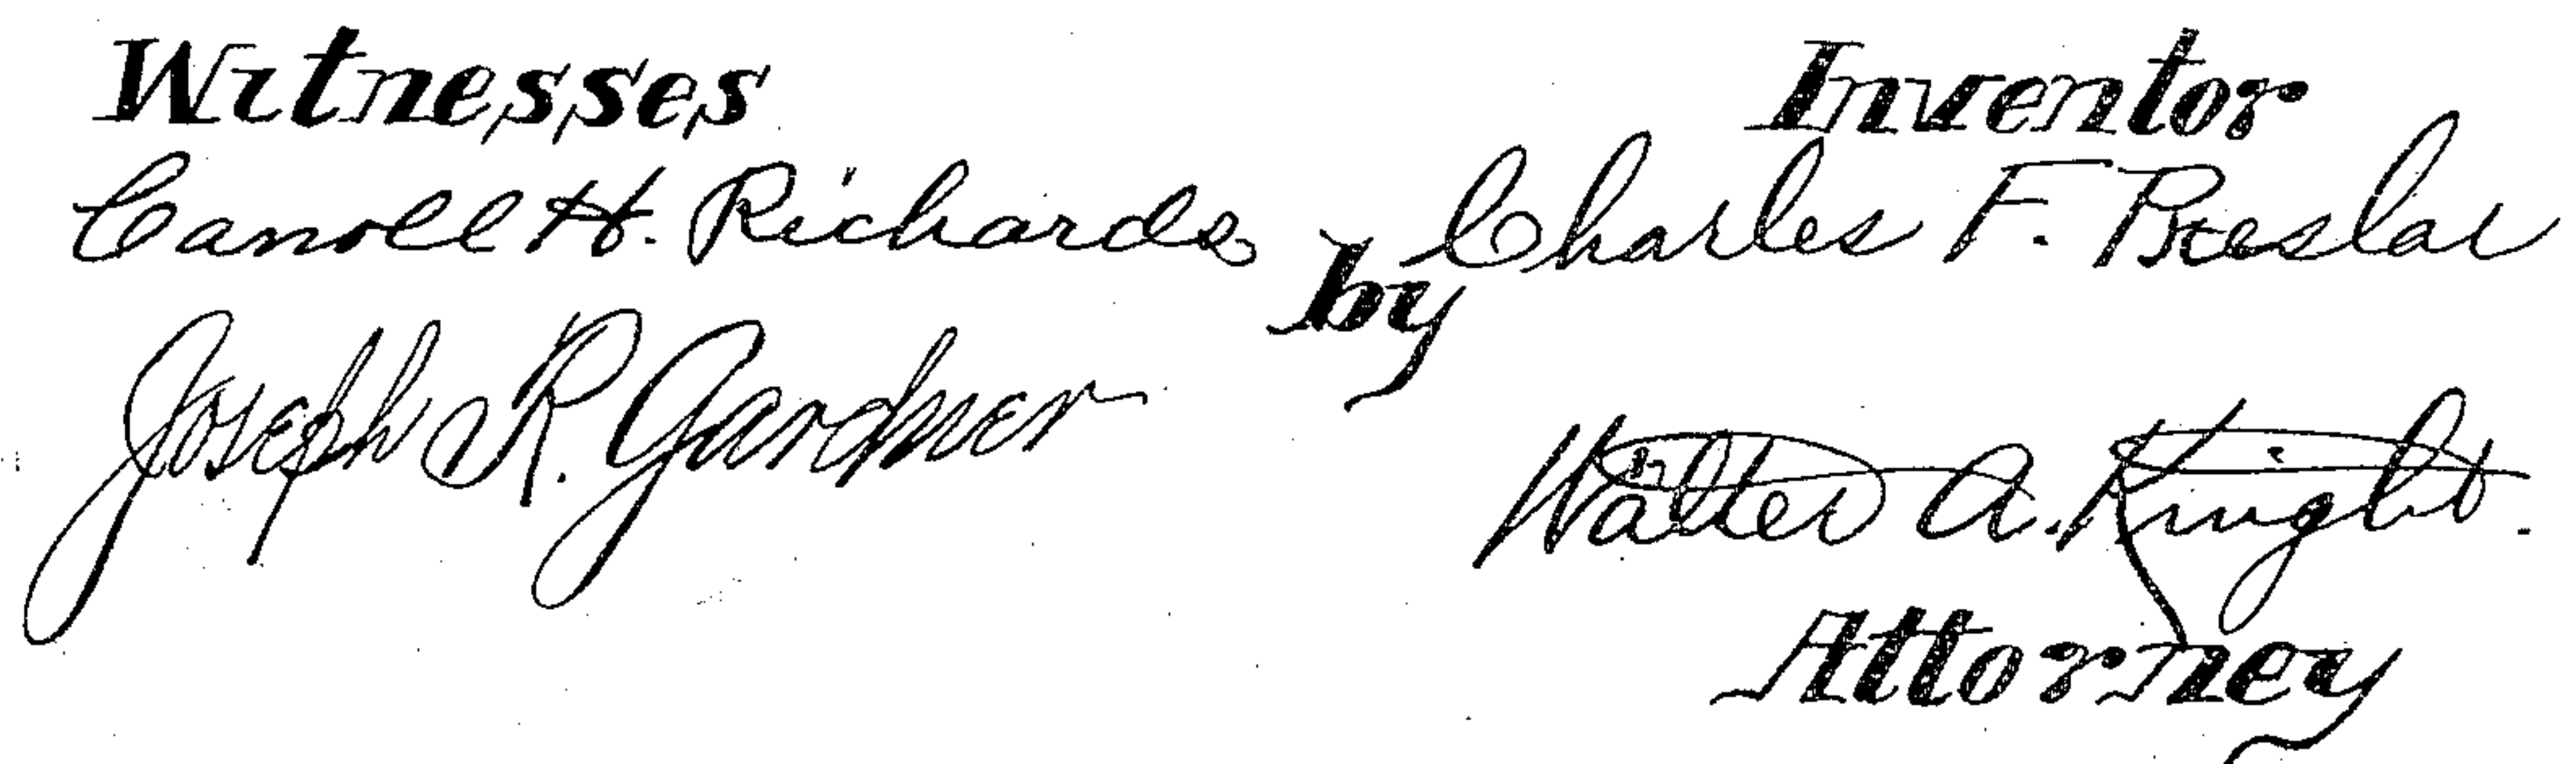 Witnesses
Carroll H. Richards
Joseph R. Gardner
Inventor
Charles F. Breslau
by
Walter A. Knight.
Attorney